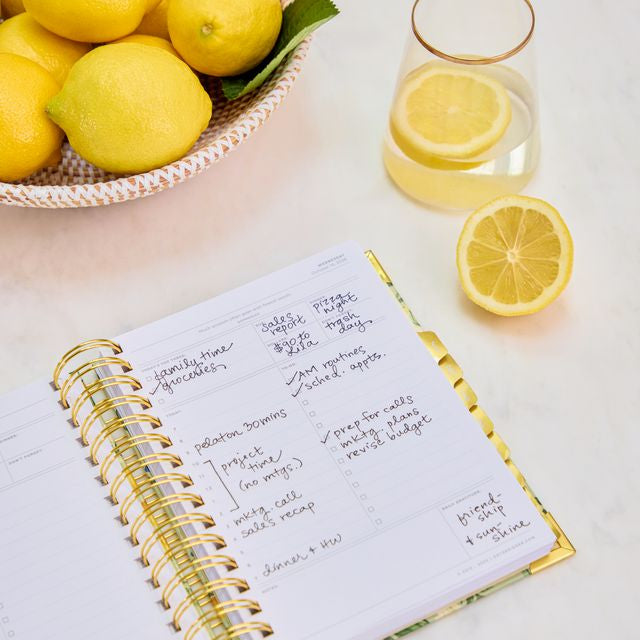 WEDNESDAY
family time
groceries
sales
report
$ go to
Lila
pizza
night
trash
day
AM routines
sched. appts.
peloton 30 mins
project
time
(no mtgs.)
mktg call
sales recap
dinner + HW
prep for calls
mktg plans
revise budget
friend-
ship
+ sun-
shine